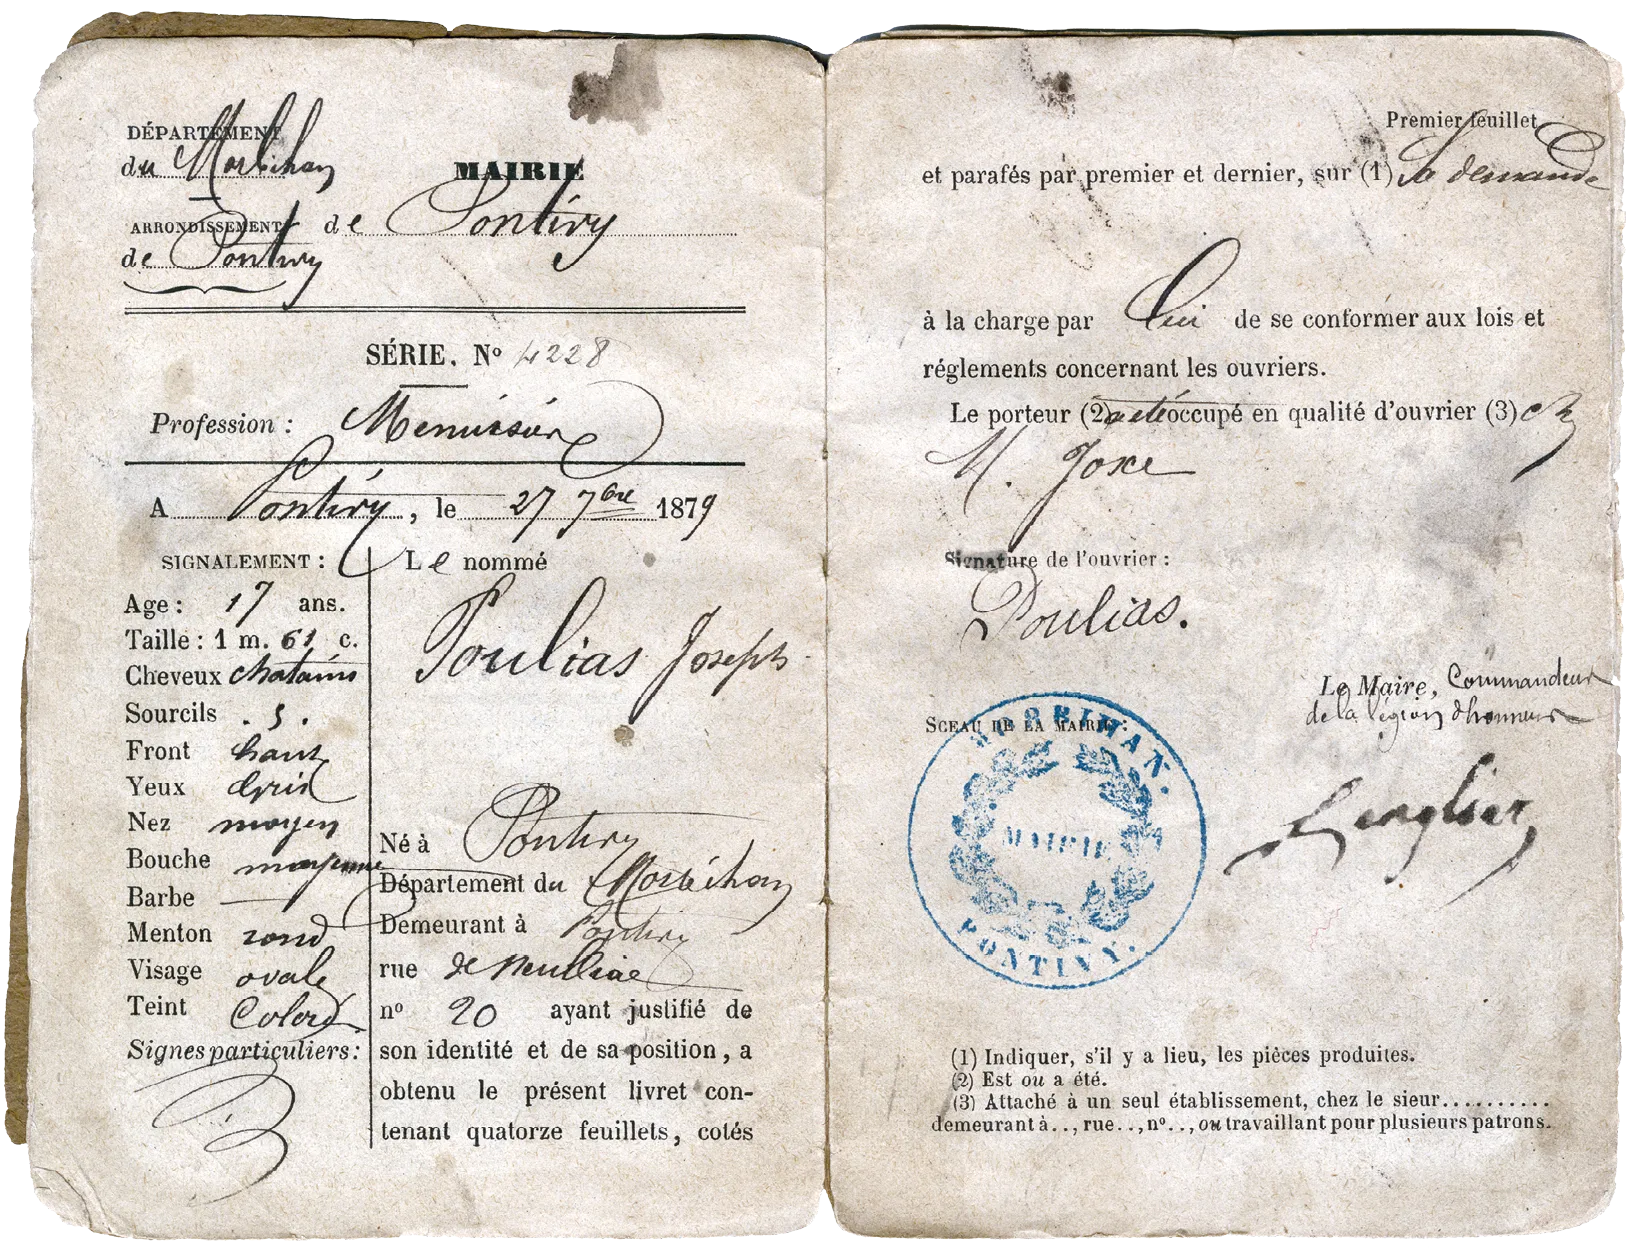 DÉPARTEMENT
du Morbihan
MAIRIE
ARRONDISSEMENT
de Pontivy
de Pontivy
SÉRIE. Nº 4228
Profession : Menuisier
A Pontivy, le 27 7bre 1879
SIGNALEMENT :
Age : 17 ans.
Taille : 1 m. 61 c.
Cheveux chatains
Sourcils . s .
Front haut
Yeux Gris
Nez moyen
Bouche moyenne
Barbe —
Menton rond
Visage ovale
Teint Coloré
Signes particuliers :
Le nommé
Poulias Joseph
Né à Pontivy
Département du Morbihan
Demeurant à Pontivy
rue de Neulliac
nº 20 ayant justifié de
son identité et de sa position, a
obtenu le présent livret con-
tenant quatorze feuillets, cotés
Premier feuillet
et parafés par premier et dernier, sur (1) Sa demande
à la charge par lui de se conformer aux lois et
réglements concernant les ouvriers.
Le porteur (2) a été occupé en qualité d'ouvrier (3) chz
M. Joxe
Signature de l'ouvrier :
Poulias.
Le Maire, Commandeur
de la légion d'honneur
SCEAU DE LA MAIRIE :
MORBIHAN.
MAIRIE
PONTIVY.
(1) Indiquer, s'il y a lieu, les pièces produites.
(2) Est ou a été.
(3) Attaché à un seul établissement, chez le sieur..........
demeurant à .., rue .., nº .., ou travaillant pour plusieurs patrons.